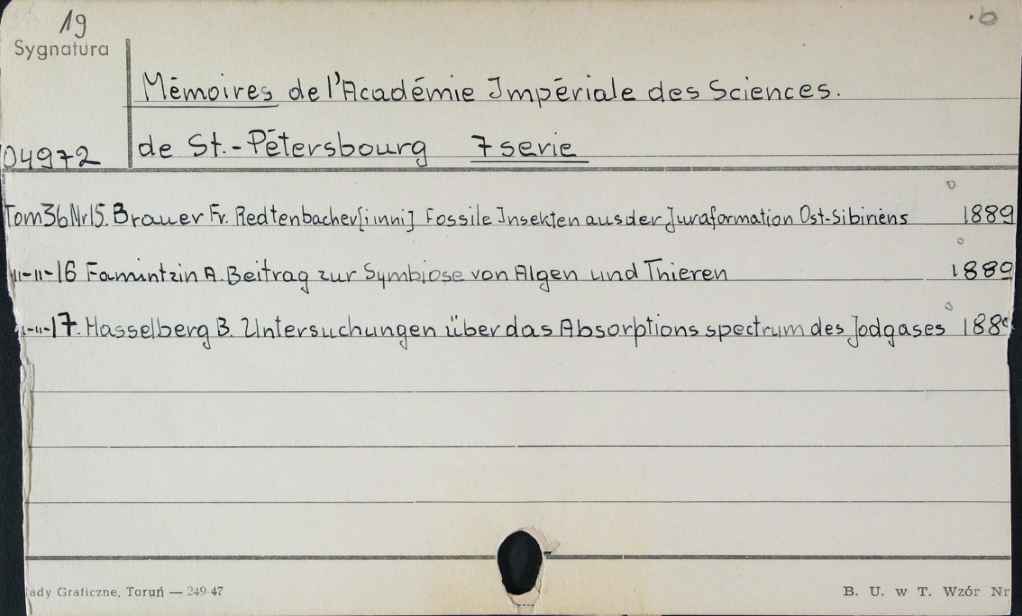 19 .b
Sygnatura
Mémoires de l'Académie Impériale des Sciences.
04972 de St.-Pétersbourg 7 serie
Tom 36 Nr 15. Brauer Fr. Redtenbacher [i inni] Fossile Insekten aus der Juraformation Ost-Sibiriens 1889
-"-"-16 Famintzin A. Beitrag zur Symbiose von Algen und Thieren 1889
-"-17. Hasselberg B. Untersuchungen über das Absorptions spectrum des Jodgases 188
ady Graficzne, Toruń — 249-47 B. U. w T. Wzór Nr